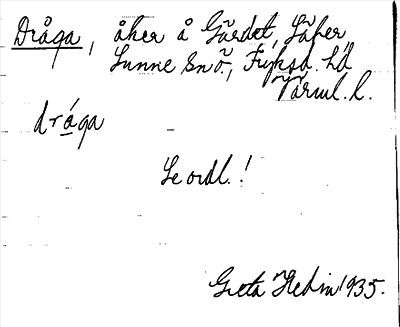 Dråga, åker å Gärdet, Säfer,
Sunne Snö., Fryksd. hd
Värml. l.
dråga
Se ordl.!
Greta Hedin 1935.